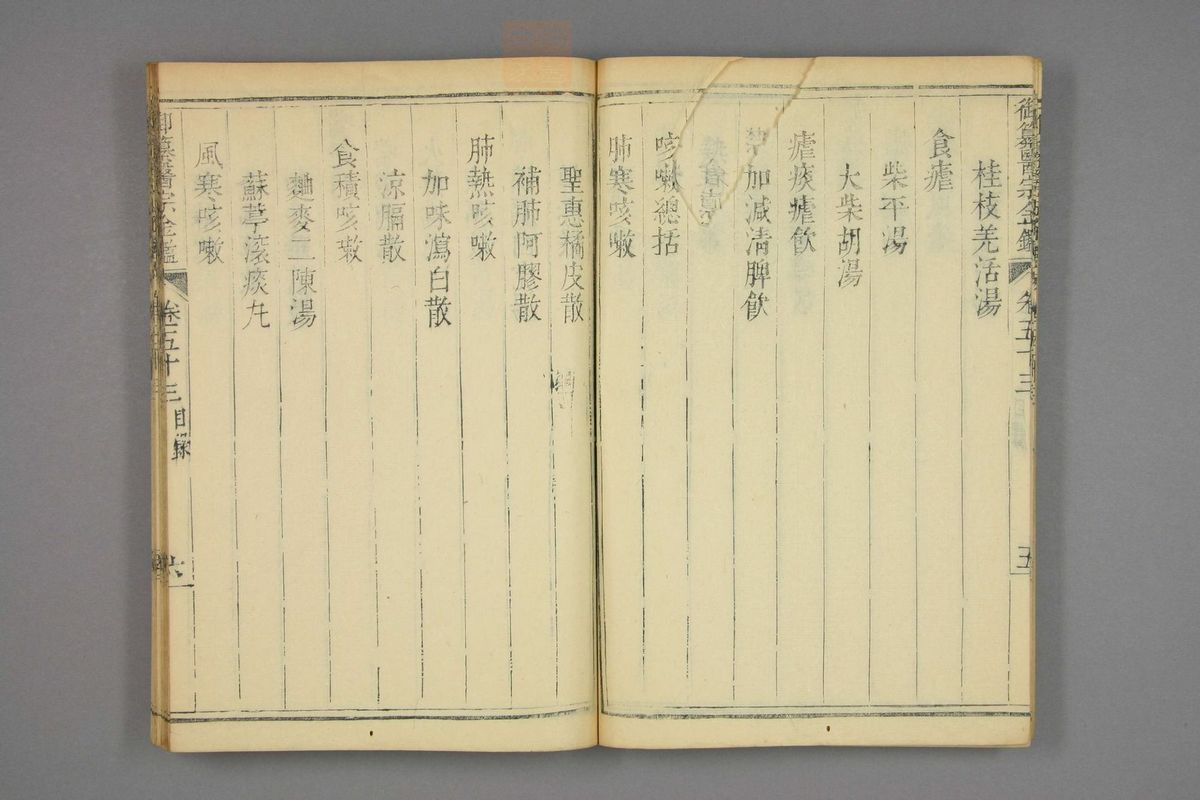 御纂醫宗金鑑 卷五十三 目錄 五
桂枝羌活湯
食瘧
柴平湯
大柴胡湯
瘧痰瘧飲
加減清脾飲
咳嗽總括
肺寒咳嗽
聖惠橘皮散
補肺阿膠散
肺熱咳嗽
加味瀉白散
涼膈散
食積咳嗽
麯麥二陳湯
蘇葶滚痰丸
風寒咳嗽
御纂醫宗金鑑 卷五十三 目錄 六